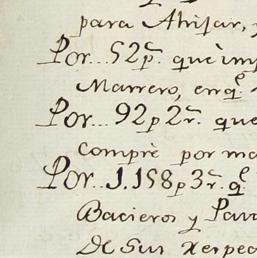 para Ahijar, y
Por... 52p.s que imp
Marrero, en q.e
Por... 92p2r.s que
Comprè por ma
Por... 1.158p3r.s q.e
Bacieros y Pav
De Sus respec